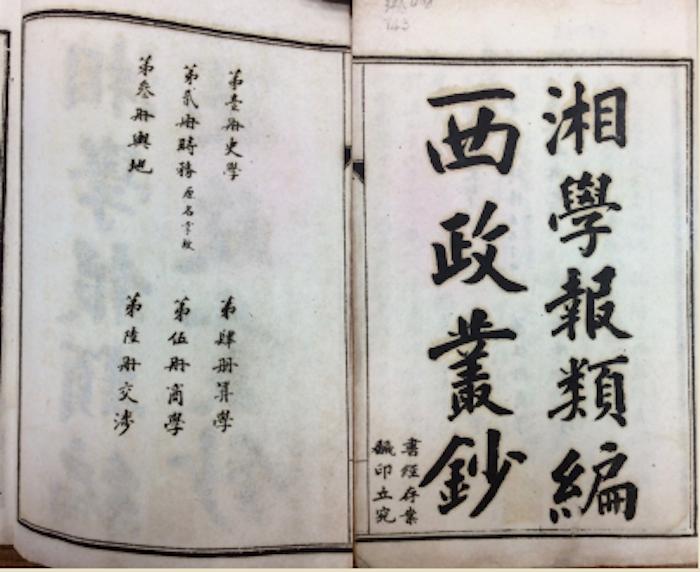 湘學報類編
西政叢鈔
書經存案
翻印立究
第壹册史學
第貳册時務原名掌故
第叄册輿地
第肆册算學
第伍册商學
第陸册交涉